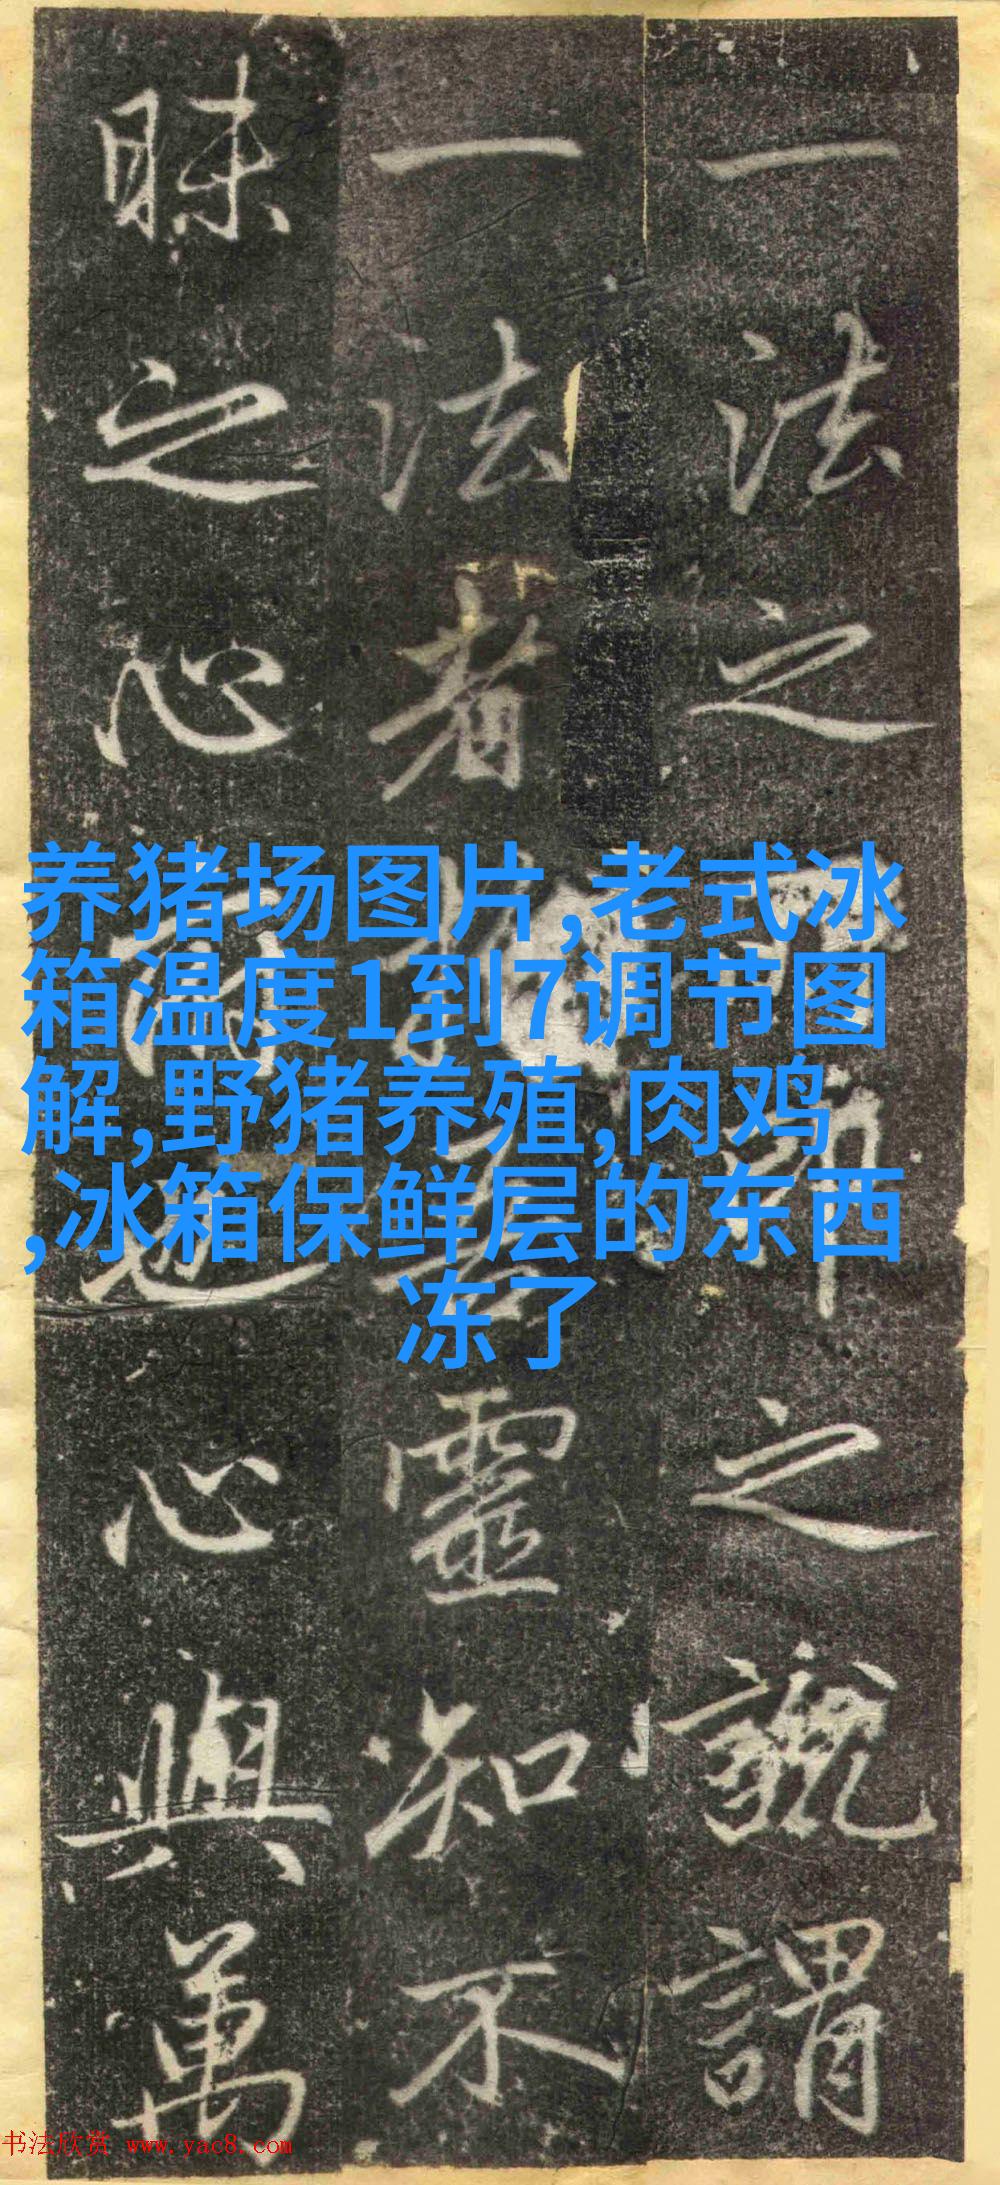 一法之之說謂
一法者靈知不
昧之心心與萬
养猪场图片,老式冰
箱温度1到7调节图
解,野猪养殖,肉鸡
,冰箱保鲜层的东西
冻了
书法欣赏 www.yac8.com